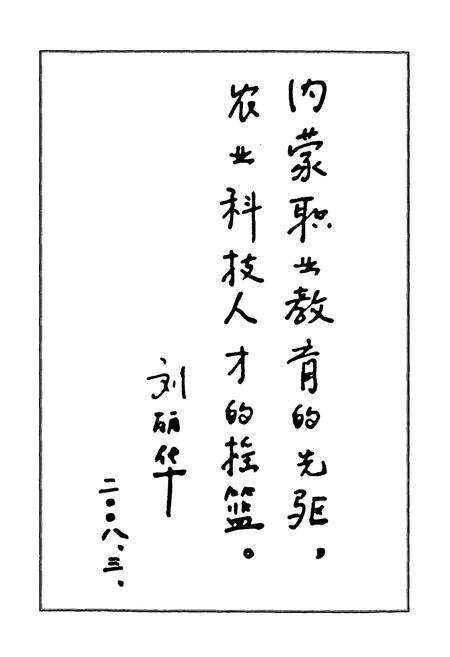 内蒙职业教育的先驱，
农业科技人才的摇篮。
刘丽华
二〇〇八.三.